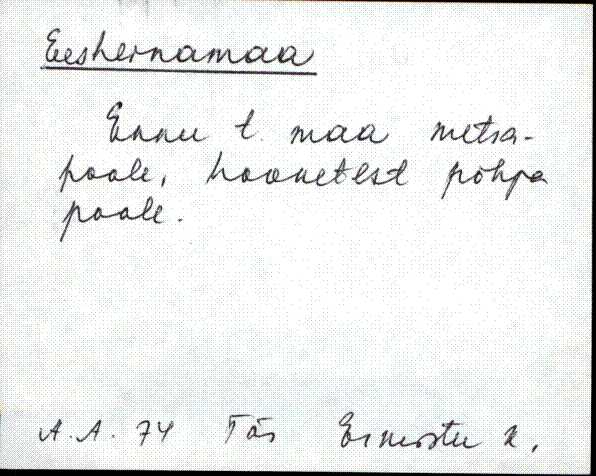 Eeshernamaa
Ennu t. maa metsa-
poole, hoonetest põhja
poole.
A.A. 74 Tõs Ermistu k.